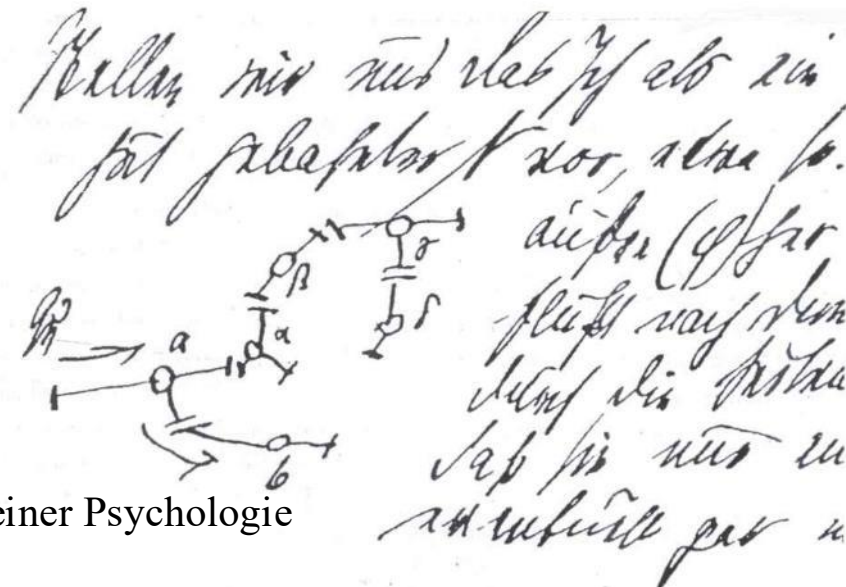 Stellen wir uns das Ich als ein
gut gebahnter N vor, etwa so.
außen (φ) her
fließt nach dem
durch die Seiten
daß sie nur
eventuell gar n
β
γ
δ
α
Qη
a
b
einer Psychologie